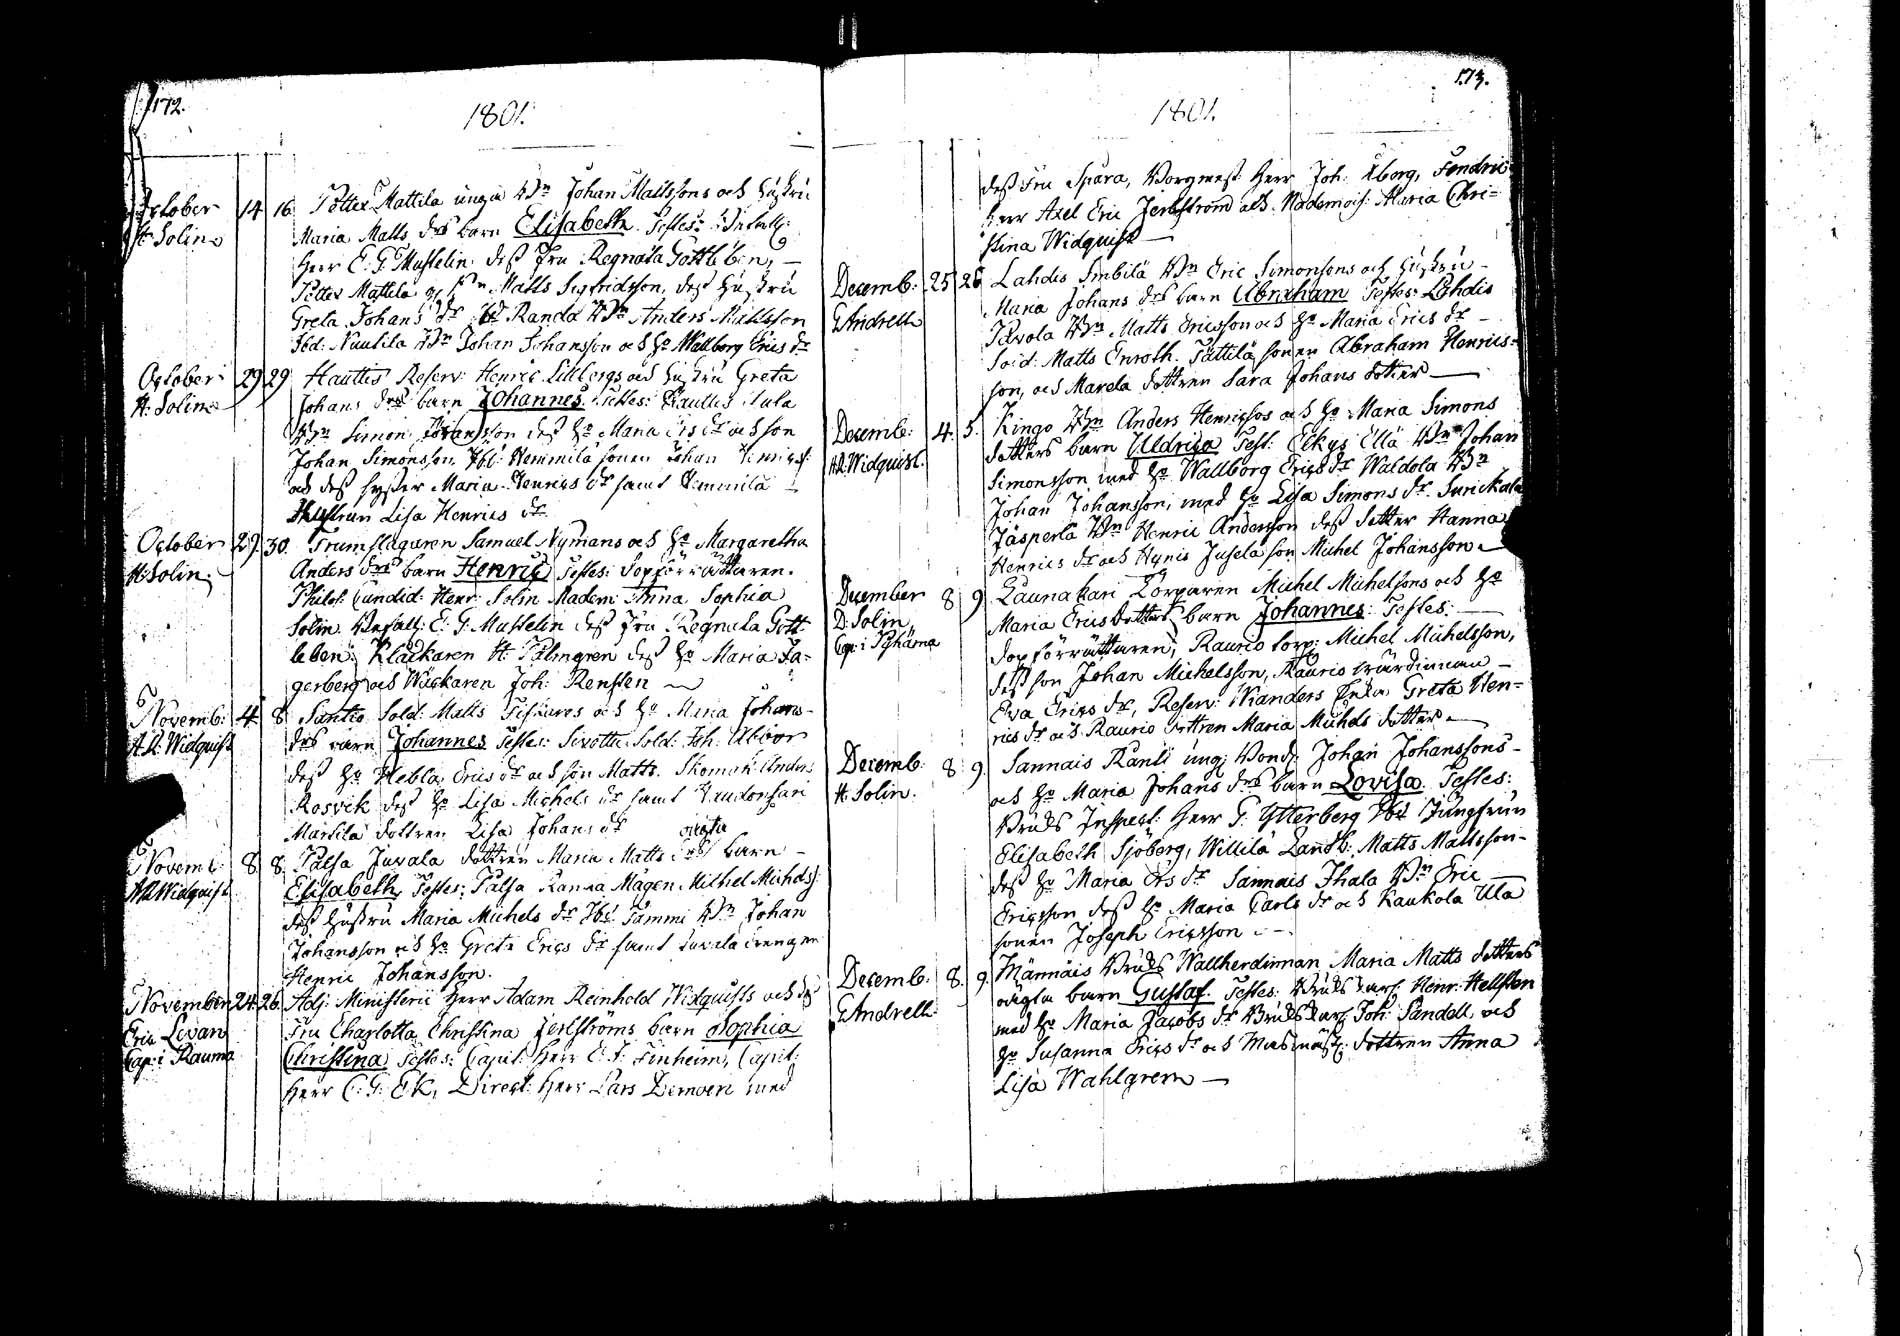 172.
1801.
October 14 16 Potter Mattila unga Bdn Johan Mattssons och Hustru
H: Solin Maria Matts drs barn Elisabeth Testes: Befallg:
Herr E. G. Musselin dess Fru Regnata Gottleben,
Potter Mattila Matts Sigfridsson, dess Hustru
Greta Johans dr Randa Bdn Anders Mattsson
Ibd: Nuutila Bdn Johan Johansson och Ho Wallborg Erics dr
October 29 29 Hauttis Reserv: Henric Lillbergs och hustru Greta
H: Solin Johans drs barn Johannes Testes: Rauttis Tula
Bdn Simon Johansson dess Ho Maria Ers dr och son
Johan Simonsson, Ibd: Hemmilä sonen Johan Henrics:
och dess syster Maria Henrics dr samt Hemmilä
Hustrun Lisa Henrics dr
October 29 30. Trumslagaren Samuel Nymans och Ho Margaretha
H: Solin Anders drs barn Henric Testes: Dopförrättaren.
Philos: Candid: Henr: Solin Madem: Anna Sophia
Solin Befall: E: G: Musselin dess Fru Regnata Gott
leben, Klåckaren H: Palmgren dess Ho Maria Fa=
gerberg och Wäckaren Joh: Rensten
Novemb: 4 8 Santio Sold: Matts Fiskares och Ho Maria Johans
A.R: Widquist drs barn Johannes Testes: Sivotta Sold: Joh:
dess Ho Hebla Erics dr och son Matts. Skomak: Anders
Rosvik dess Ho Lisa Michels dr samt
Marsila dottren Lisa Johans dr
oägta
Novemb: 8 8 Palsa Juvala dottren Maria Matts drs barn
A.R. Widquist Elisabeth Testes: Palsa Ranna Mågen Michel Michels:
dess Hustru Maria Michels dr Ibd: Tammi Bdn Johan
Johansson och Ho Greta Erics dr samt Juvala drengen
Henric Johansson.
November 24 26. Adj: Ministerii Herr Adam Reinhold Widquists och dess
Eric Levan Fru Charlotta Christina Jerlströms barn Sophia
Cap: i Rauma Christina Testes: Capit: Herr E. J. Finheim, Capit:
Herr C: G: Ek, Direct: Herr Lars Demoen med
173.
1801.
dess Fru Spara, Borgmest: Herr Joh: Åborg, Fendric
Herr Axel Eric Jerlström och Mademois: Maria Chri=
stina Widquist
Decemb: 25 26 Lahdis Simbilä Bdn Eric Simonsons och Hustru
G Andrell Maria Johans drs barn Abraham Testes: Lahdis
Pavola Bdn Matts Ericsson och Ho Maria Erics dr
Sold: Matts Enroth. Pättilä sonen Abraham Henrics=
son, och Marela dottren Sara Johans dotter
Decemb: 4. 5. Kingo Bdn Anders Henricsos och Ho Maria Simons
A.R. Widquist. dotters barn Uldrica Test: Eckys Ellä Bdn Johan
Simonsson med Ho Wallborg Erics dr Waldola Bdn
Johan Johansson, med Ho Lisa Simons dr. Surickala
Jäsperlä Bdn Henric Andersson dess dotter Hanna
Henrics dr och Hynis Jusela son Michel Johansson
December 8 9 Launakari Torparen Michel Michelsons och Ho
D: Solin Maria Ericsdotters barn Johannes: Testes:
Cap: i Pyhäma dopförrättaren, Raurio torp: Michel Michelsson,
dess son Johan Michelsson, Raurio wärdinnan
Ewa Erics dr, Reserv: Wianders Enka Greta Hen=
rics dr och Raurio dottren Maria Michels dotter
Decemb: 8 9. Sannais Ranti ung: Bond: Johan Johanssons
H: Solin. och Ho Maria Johans drs barn Lovisa Testes:
Bruks Inspect: Herr G: Ytterberg Ibd: Jungfrun
Elisabeth Sjöberg, Willilä Landb: Matts Mattsson
dess Ho Maria Ers dr Sannais Ihala Bdn Eric
Ericsson dess Ho Maria Carls dr och Kaukola Ula
sonen Joseph Ericsson
Decemb: 8. 9. Männäis Bruks Wallherdinnan Maria Matts dotters
G Andrell oägta barn Gustaf. Testes: Bruks karl Henr: Hellsten
med Ho Maria Jacobs dr Bruks karl Joh: Sandell, och
Ho Susanna Erics dr och Masmäst: dottren Anna
Lisa Wahlgren